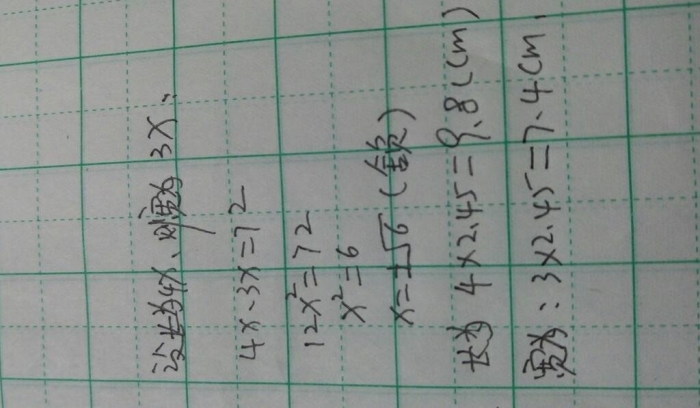 设长为4X、则宽为3X、
4X、3X=72
12X²=72
X²=6
X=±√6(舍负)
长为 4×2.45=9.8(cm)
宽为:3×2.45=7.4cm.